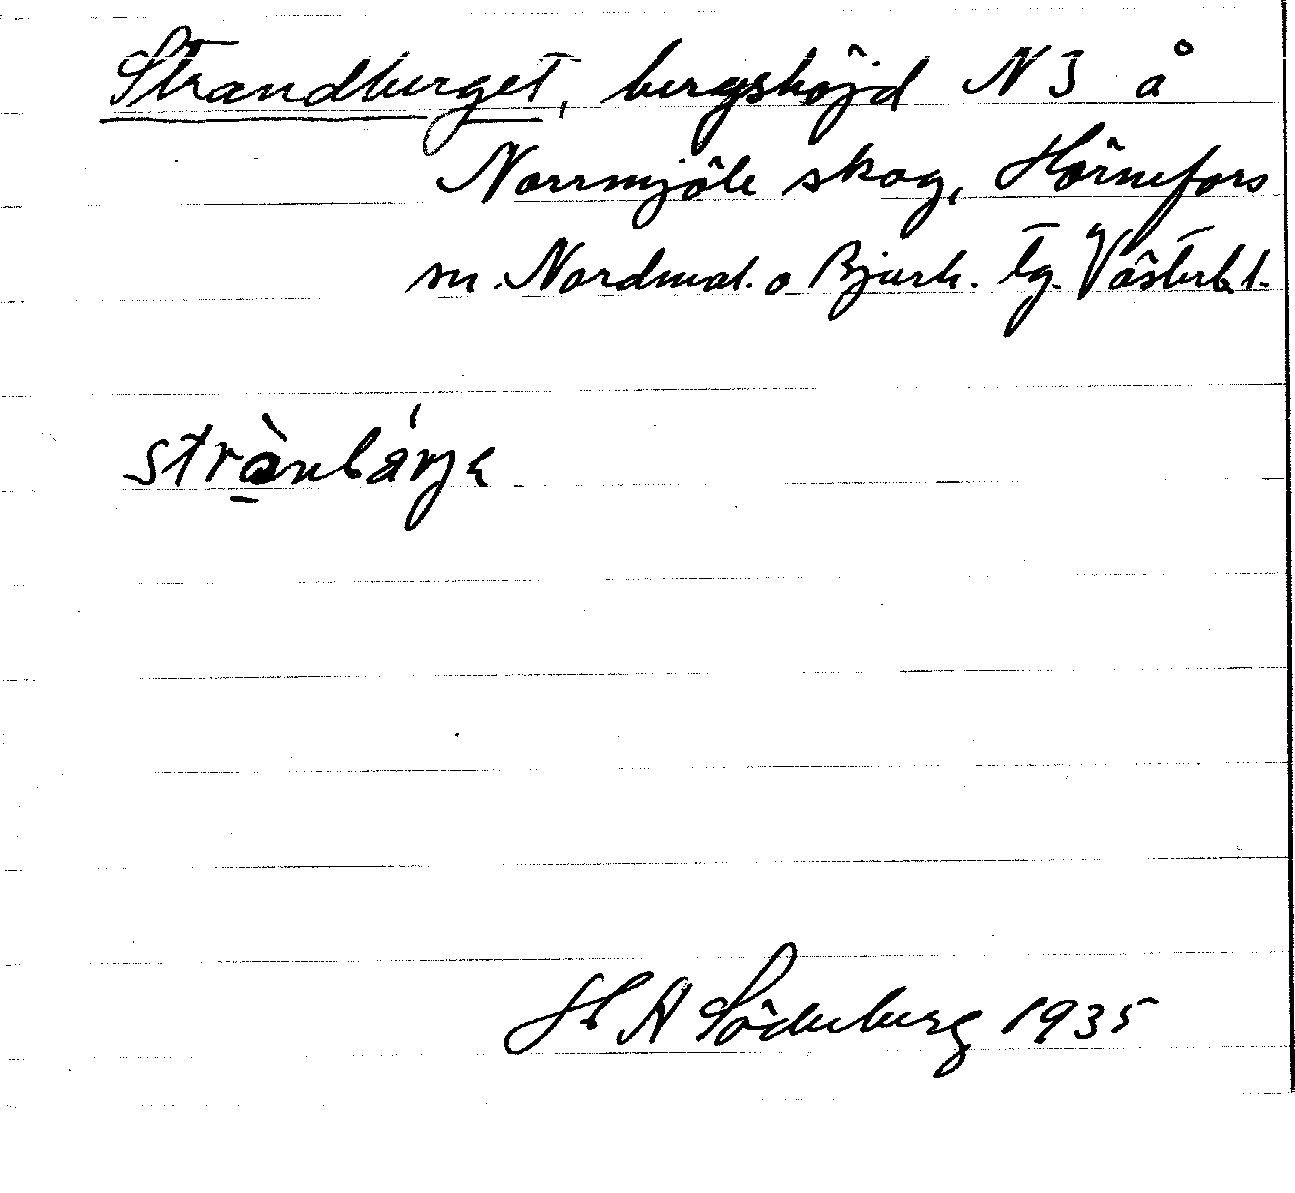 Strandberget, bergshöjd N 3 å
Norrmjöle skog, Hörnefors
sn. Nordmal. o Bjurh. tg. Västerb. l.
strànbárje
H A Söderberg 1935